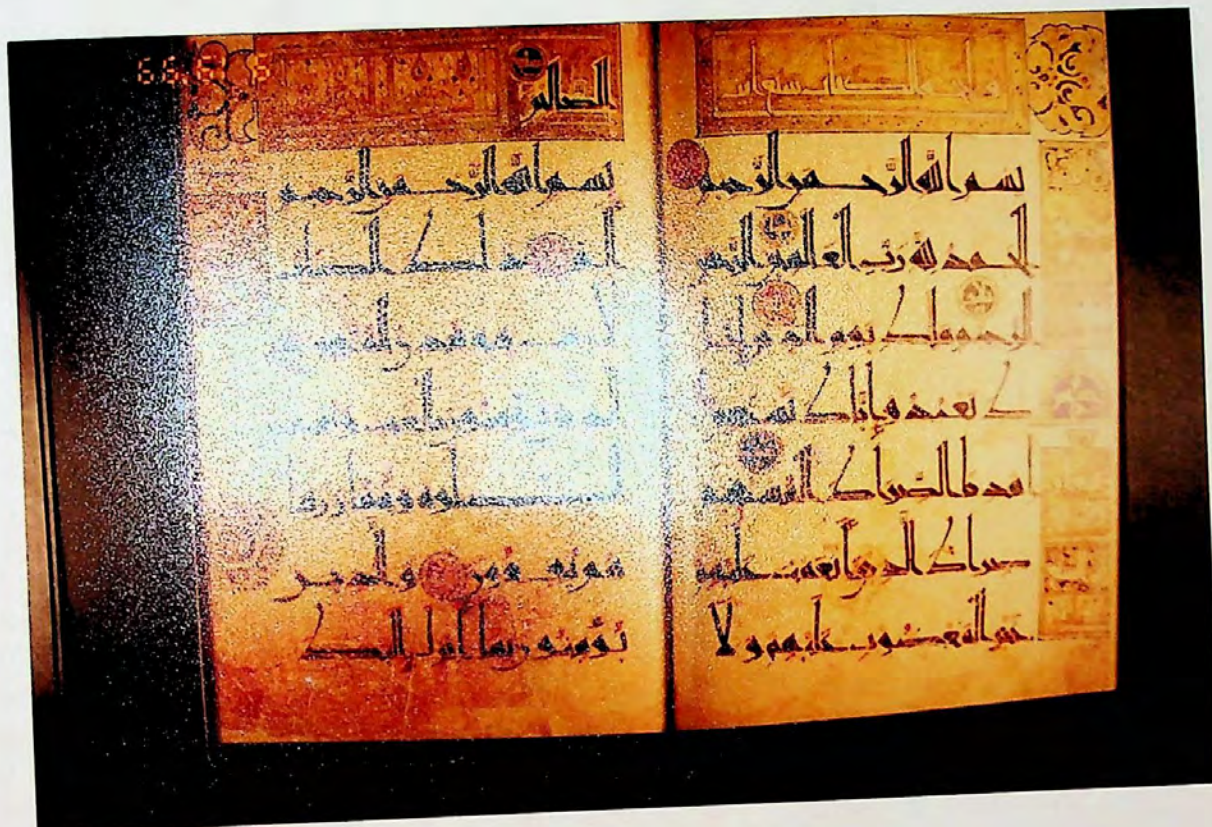 فاتحة الكتاب سبع آيات
بسم الله الرحمن الرحيم
الحمد لله رب العالمين الرحمن
الرحيم ملك يوم الدين إيا
ك نعبد وإياك نستعين
اهدنا الصراط المستقيم
صراط الذين أنعمت عليهم
غير المغضوب عليهم ولا
الضالين
بسم الله الرحمن الرحيم
الم ذلك الكتاب
لا ريب فيه هدى للمتقين
الذين يؤمنون بالغيب ويقيمون
الصلوة ومما رزقنا
هم ينفقون والذين
يؤمنون بما أنزل إليك